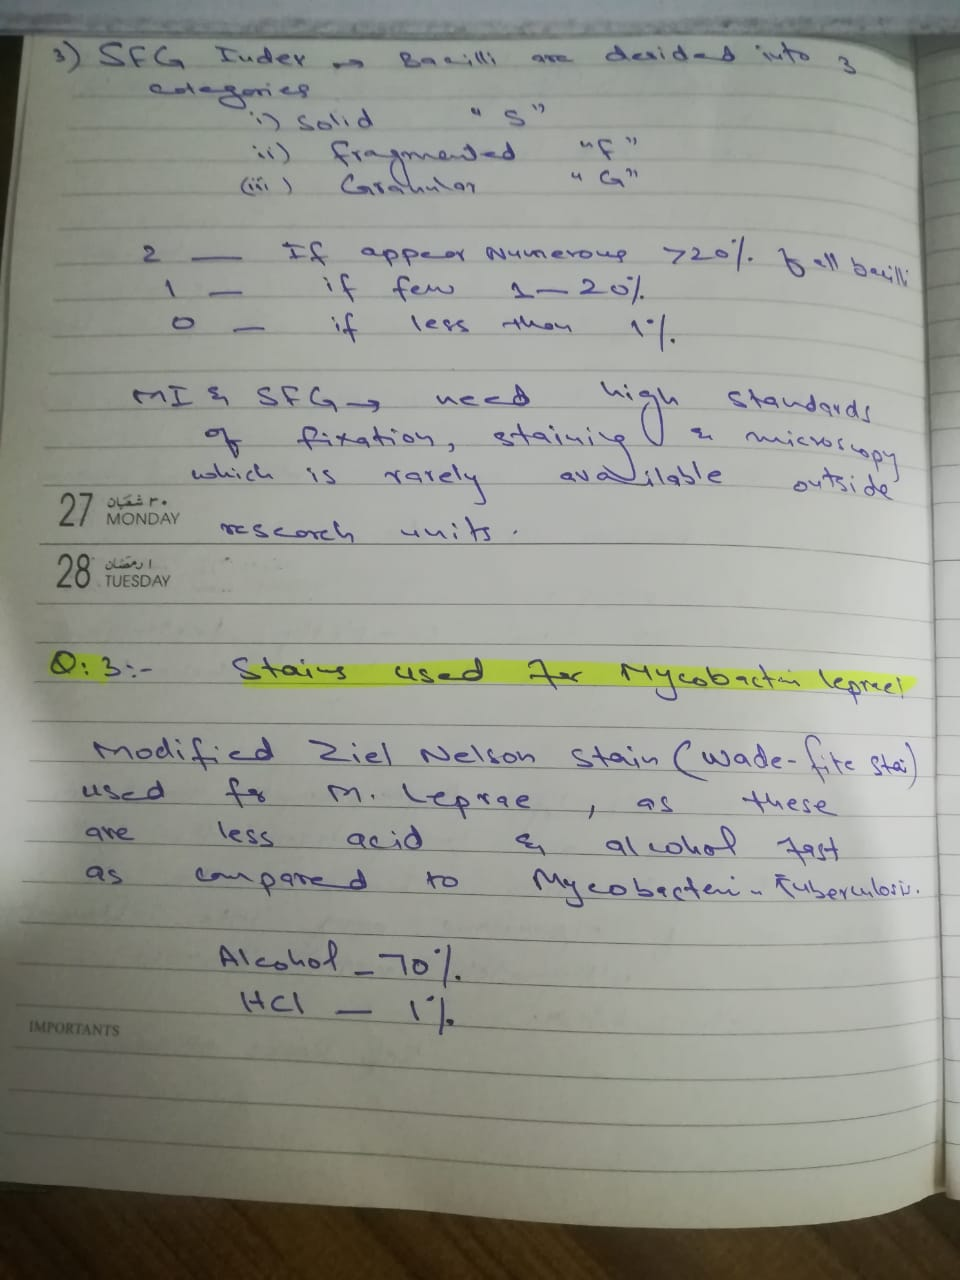 3) SFG Index → Bacilli are desided into 3
categories
i) Solid "S"
ii) fragmented "F"
(iii) Granular "G"
2 — If appear Numerous >20% of all bacilli
1 — if few 1-20%
0 — if less than 1%.
MI & SFG → need high standards
of fixation, staining & microscopy
which is rarely available outside
27 ٣٠ شعبان
MONDAY
research units.
28 ١ رمضان
TUESDAY
Q:3:- Stains used for Mycobacteri leprae!
Modified Ziel Nelson Stain (Wade-fite stai)
used for M. Leprae, as these
are less acid & alcohol fast
as compared to Mycobacteri Tuberculosis.
Alcohol - 70%.
HCl — 1%
IMPORTANTS